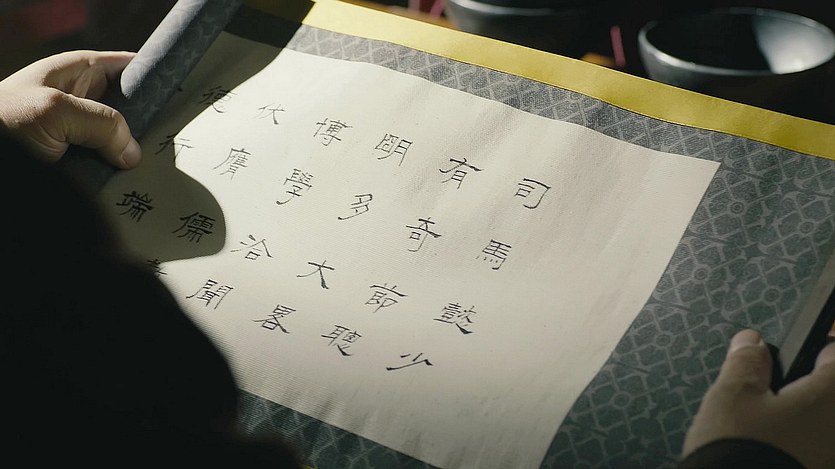 司馬懿少
有奇節聰
明多大畧
博學洽聞
伏膺儒
行端